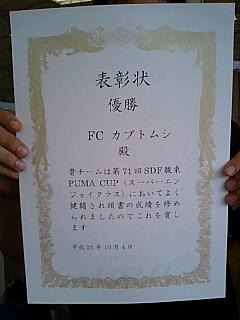 表彰状
優勝
FC カブトムシ
殿
貴チームは第71回SDF駿東
PUMA CUP（スーパーエン
ジョイクラス）においてよく
健闘され頭書の成績を修め
られましたのでこれを賞し
ます
平成21年10月4日